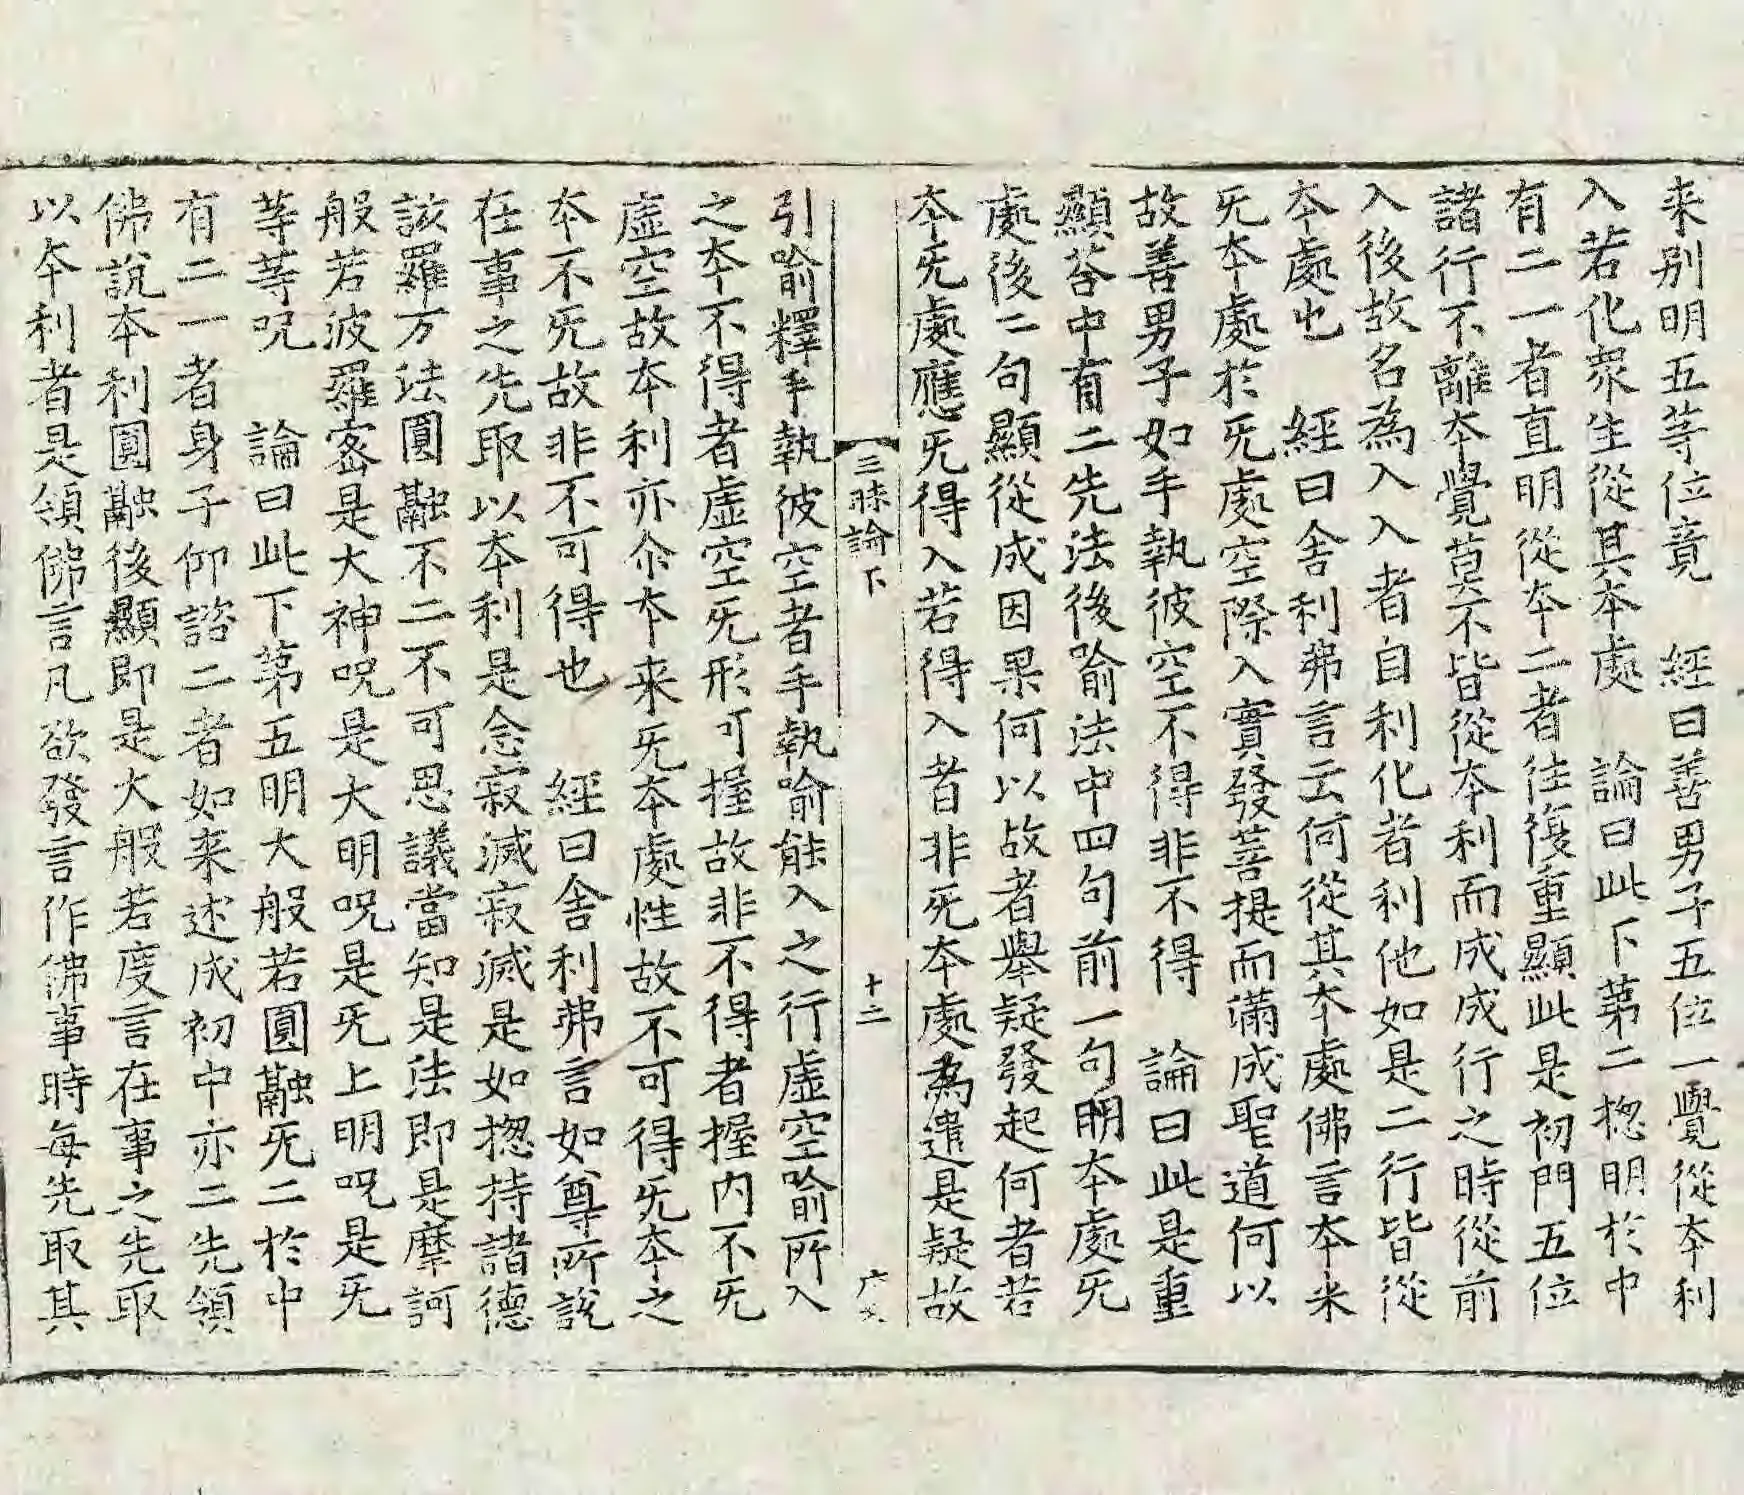 来别明五等位竟　經曰善男子五位一覺從本利
入若化衆生從其本處　論曰此下第二揔明於中
有二一者直明從本二者往復重顯此是初門五位
諸行不離本覺莫不皆從本利而成成行之時從前
入後故名為入入者自利化者利他如是二行皆從
本處也　經曰舍利弗言云何從其本處佛言本来
旡本處於旡處空際入實發菩提而滿成聖道何以
故善男子如手執彼空不得非不得　論曰此是重
顯荅中有二先法後喻法中四句前一句明本處旡
處後二句顯從成因果何以故者舉疑發起何者若
本旡處應旡得入若得入者非旡本處為遣是疑故
三昧論下　十二
引喻釋手執彼空者手執喻能入之行虛空喻所入
之本不得者虛空旡形可握故非不得者握內不旡
虛空故本利亦尒本来旡本處性故不可得旡本之
本不旡故非不可得也　經曰舍利弗言如尊所說
在事之先取以本利是念寂滅寂滅是如揔持諸德
該羅万法圓融不二不可思議當知是法即是摩訶
般若波羅蜜是大神呪是大明呪是旡上明呪是旡
等等呪　論曰此下第五明大般若圓融旡二於中
有二一者身子仰諮二者如来述成初中亦二先領
佛說本利圓融後顯即是大般若度言在事之先取
以本利者是領佛言凡欲發言作佛事時每先取其